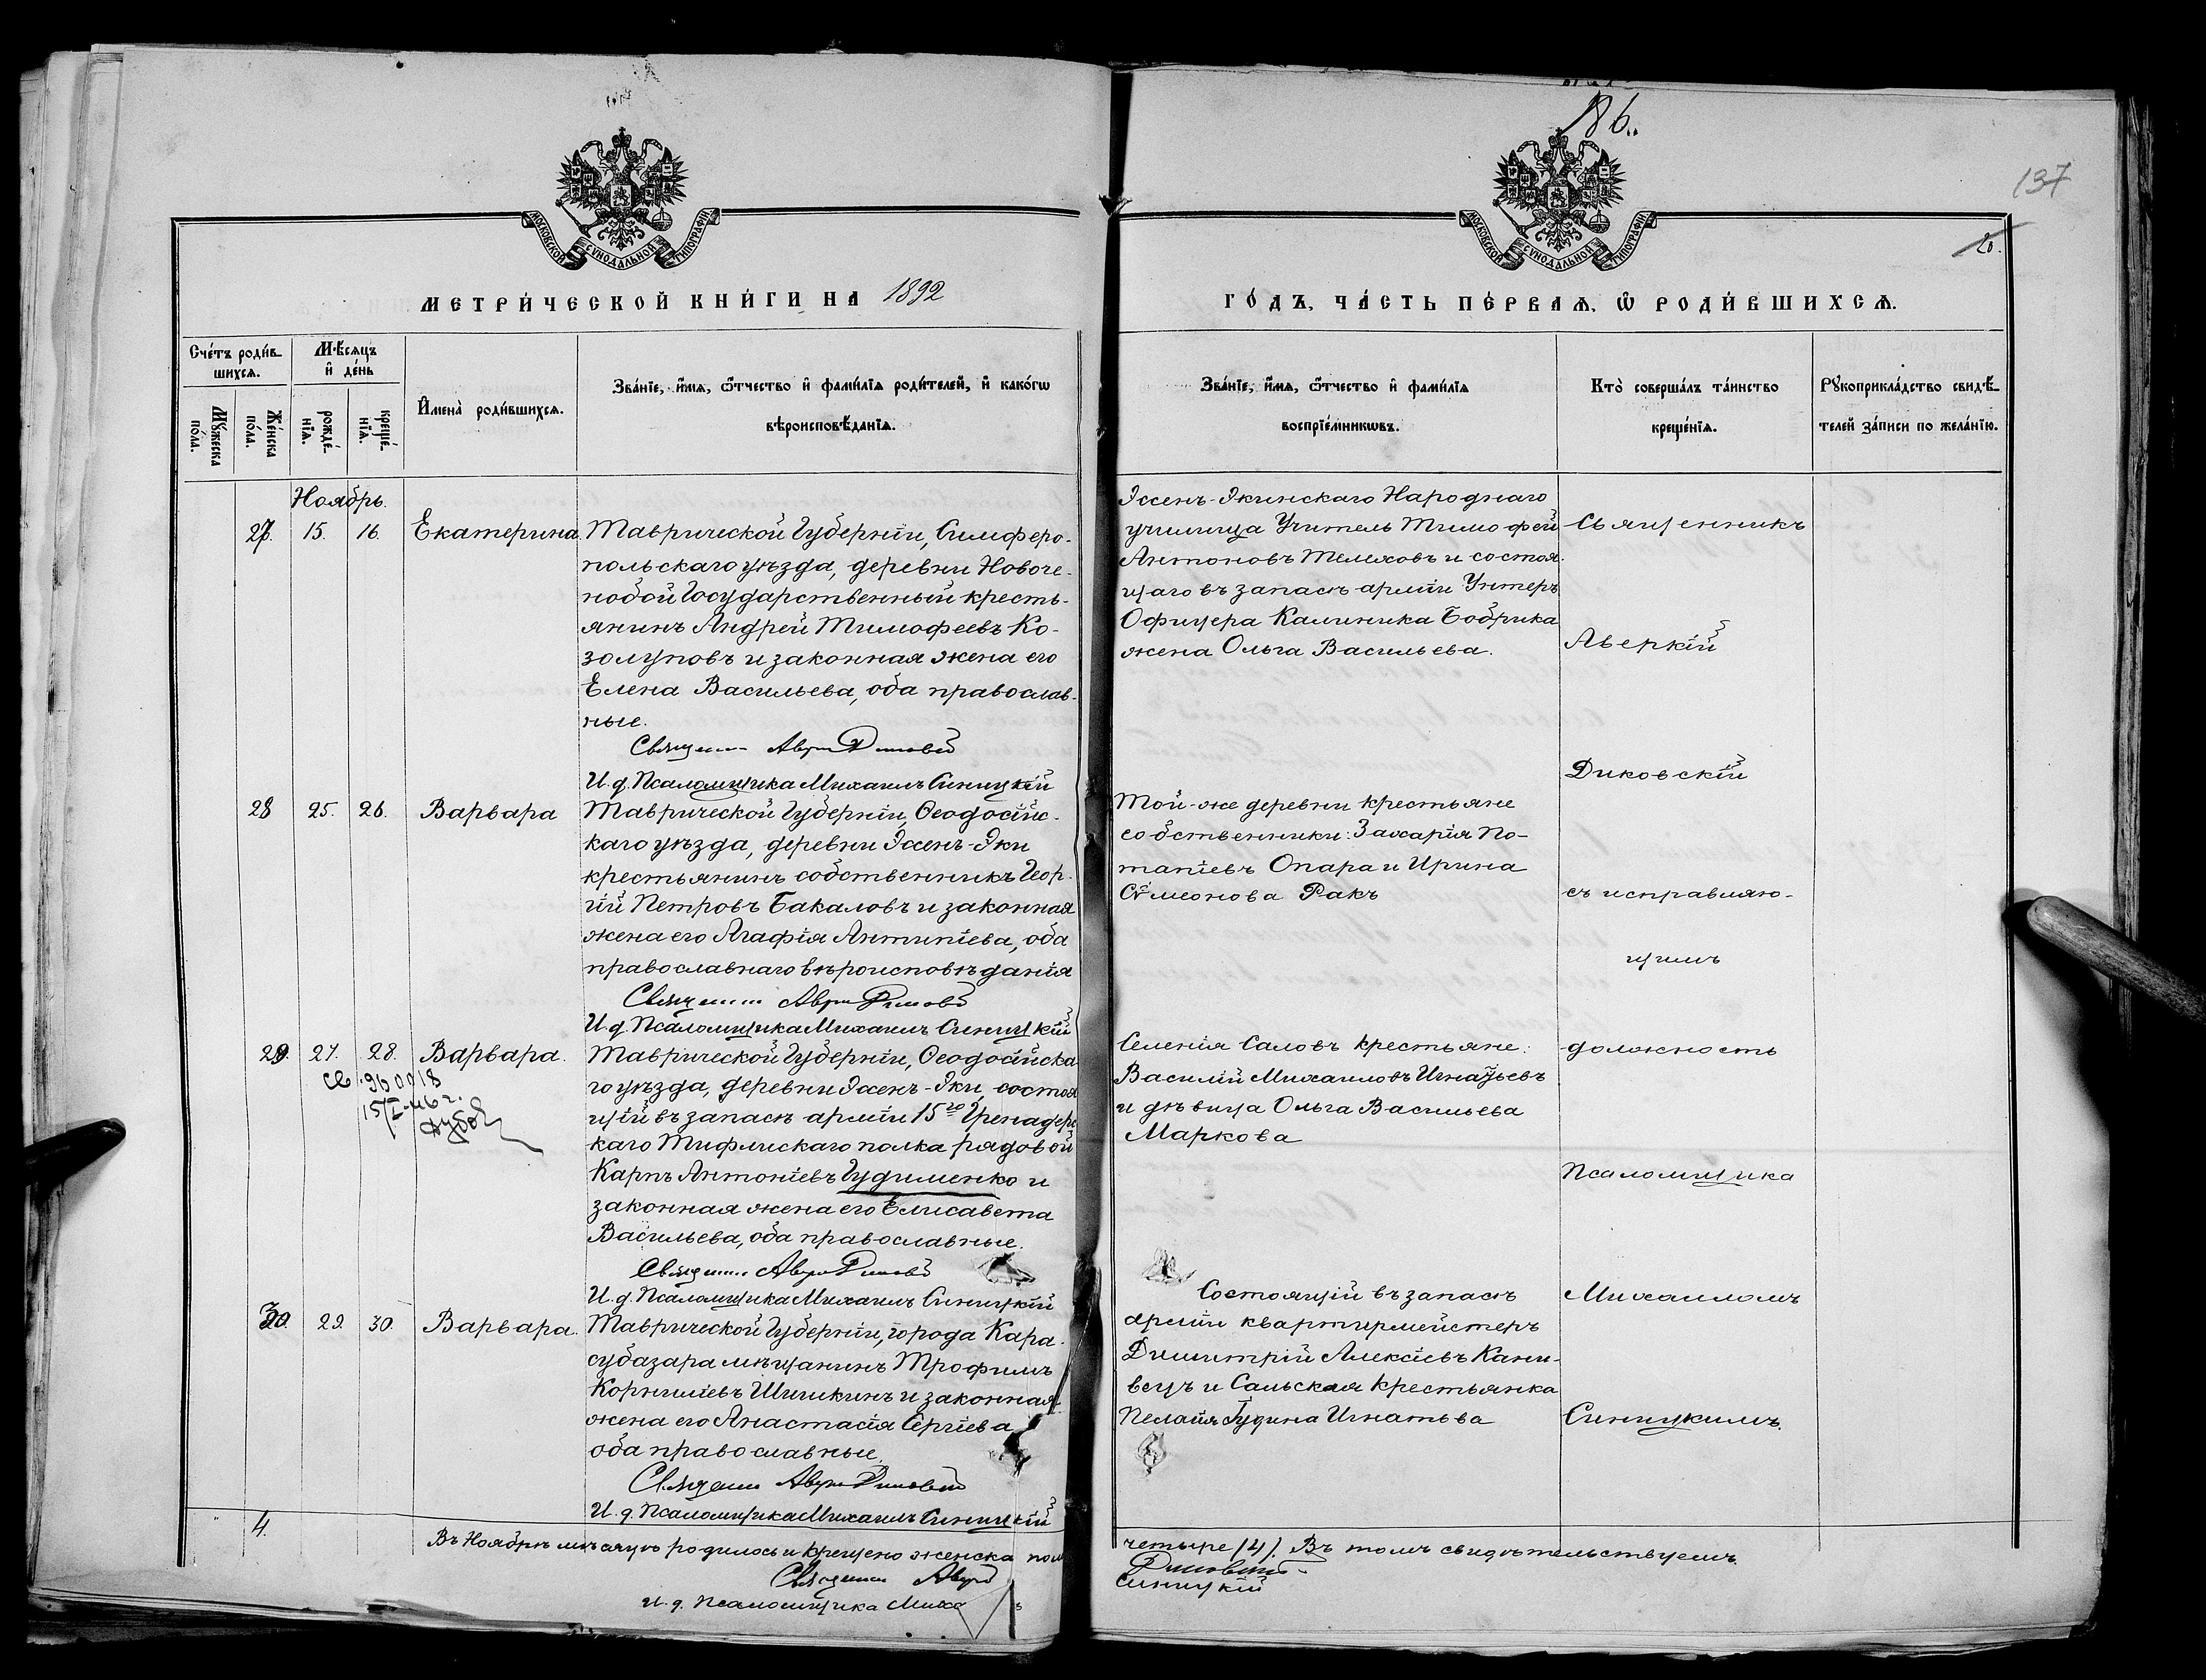 186.
137
20.
МОСКОВСКОЙ СѴНОДАЛЬНОЙ ТИПОГРАФІИ
МОСКОВСКОЙ СѴНОДАЛЬНОЙ ТИПОГРАФІИ
МЕТРИ́ЧЕСКОЙ КНИ́ГИ НА 1892
ГО́ДЪ, ЧА́СТЬ ПЕ́РВАЯ, Ѡ РОДИ́ВШИХСЯ.
Сче́тъ роди́в-
шихся.
Мѣ́сяцъ
и҆ де́нь
Мꙋ́жеска
по́ла.
Же́нска
по́ла.
рожде́-
нїя.
креще́-
нїя.
И҆мена̀ роди́вшихся.
Зва́нїе, и҆́мя, ѻ҆́тчество и҆ фами́лїя роди́телей, и҆ како́гѡ
вѣроисповѣ́данїя.
Зва́нїе, и҆́мя, ѻ҆́тчество и҆ фами́лїя
воспрїе́мникѡвъ.
Кто̀ соверша́лъ та́инство
креще́нїя.
Рꙋкоприкла́дство свидѣ́-
телей за́писи по жела́нїю.
Ноябрь.
27. 15. 16. Екатерина
Таврической Губерніи, Симферо-
польскаго уѣзда, деревни Новоче-
нобой Государственный кресть-
янинъ Андрей Тимофеевъ Ко-
золуповъ и законная жена его
Елена Васильева, оба православ-
ные.
И. д. Псаломщика Михаилъ Синицкій
Эссенъ-Экинскаго Народнаго
училища Учитель Тимофей
Антоновъ Телеховъ и состоя-
щаго въ запасѣ арміи Унтеръ
Офицера Калиника Бобрика
жена Ольга Васильева.
Священникъ
Аверкій
Диковскій
28 25. 26. Варвара
Таврической Губерніи, Ѳеодосійс-
каго уѣзда, деревни Эссенъ-Эки
крестьянинъ собственникъ Геор-
гій Петровъ Бакаловъ и законная
жена его Агафія Антипіева, оба
православнаго вѣроисповѣданія
И. д. Псаломщика Михаилъ Синицкій
Той-же деревни крестьяне
собственники: Захарія По-
тапіевъ Опара и Ирина
Сѵмеонова Ракъ
съ исправляю-
щимъ
29. 27. 28. Варвара.
15/I-46 г.
Таврической Губерніи, Ѳеодосійска
го уѣзда, деревни Эссенъ-Эки, состоя
щій въ запасѣ арміи 15го Гренадерс
каго Тифлискаго полка рядовой
Карпъ Антоніевъ Гудименко и
законная жена его Елисавета
Васильева, оба православные.
И. д. Псаломщика Михаилъ Синицкій
Селенія Саловъ крестьяне:
Василій Михаиловъ Игнатьевъ
и дѣвица Ольга Васильева
Маркова
должность
Псаломщика
30. 29. 30. Варвара.
Таврической Губерніи, города Кара-
субазара мѣщанинъ Трофимъ
Корниліевъ Шишкинъ и законная
жена его Анастасія Сергіева
оба православные.
И. д. Псаломщика Михаилъ Синицкій
Состоящій въ запасѣ
арміи квартирмейстеръ
Димитрій Алексіевъ Кани-
вецъ и Сальская крестьянка
Пелагія Гудина Игнатьва
Михаиломъ
Синицкимъ.
4.
Въ Ноябрѣ мѣсяцѣ родилось и крещено женска пола
четыре (4). Въ томъ свидѣтельствуемъ.
И. д. Псаломщика Миха
Синицкій